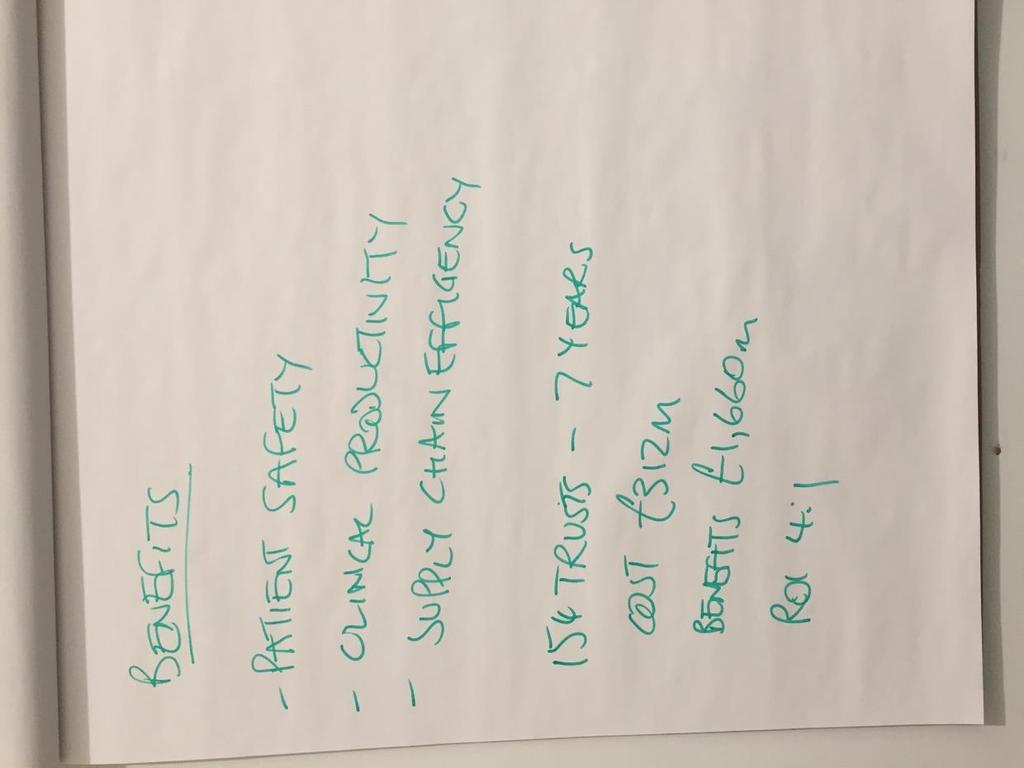 BENEFITS
- PATIENT SAFETY
- CLINICAL PRODUCTIVITY
- SUPPLY CHAIN EFFICIENCY
154 TRUSTS - 7 YEARS
COST £312M
BENEFITS £1,660m
ROI 4:1